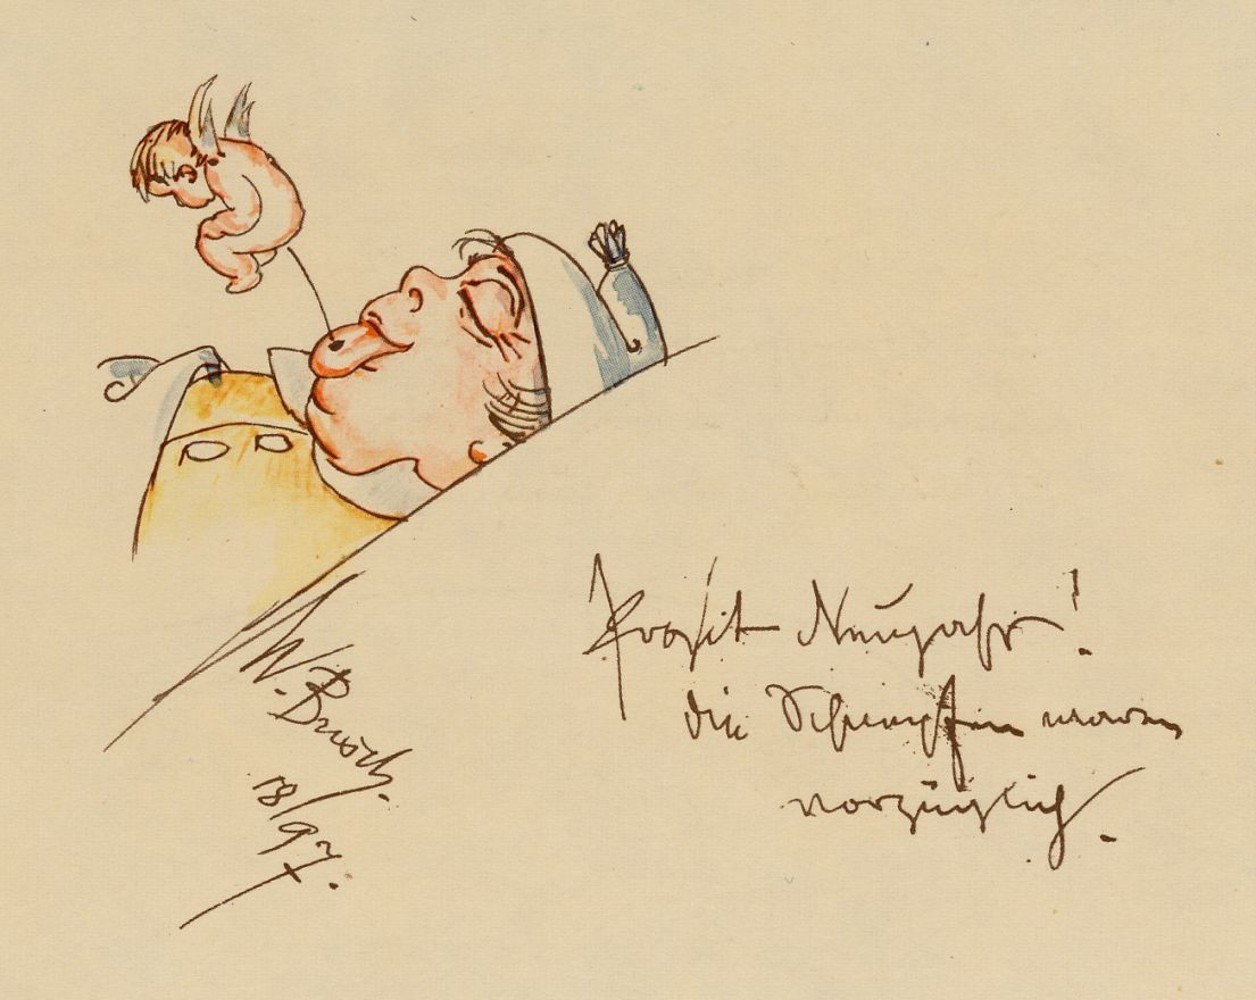 Prosit Neujahr!
die Schnepfen waren
vorzüglich.
W. Busch.
18/97.